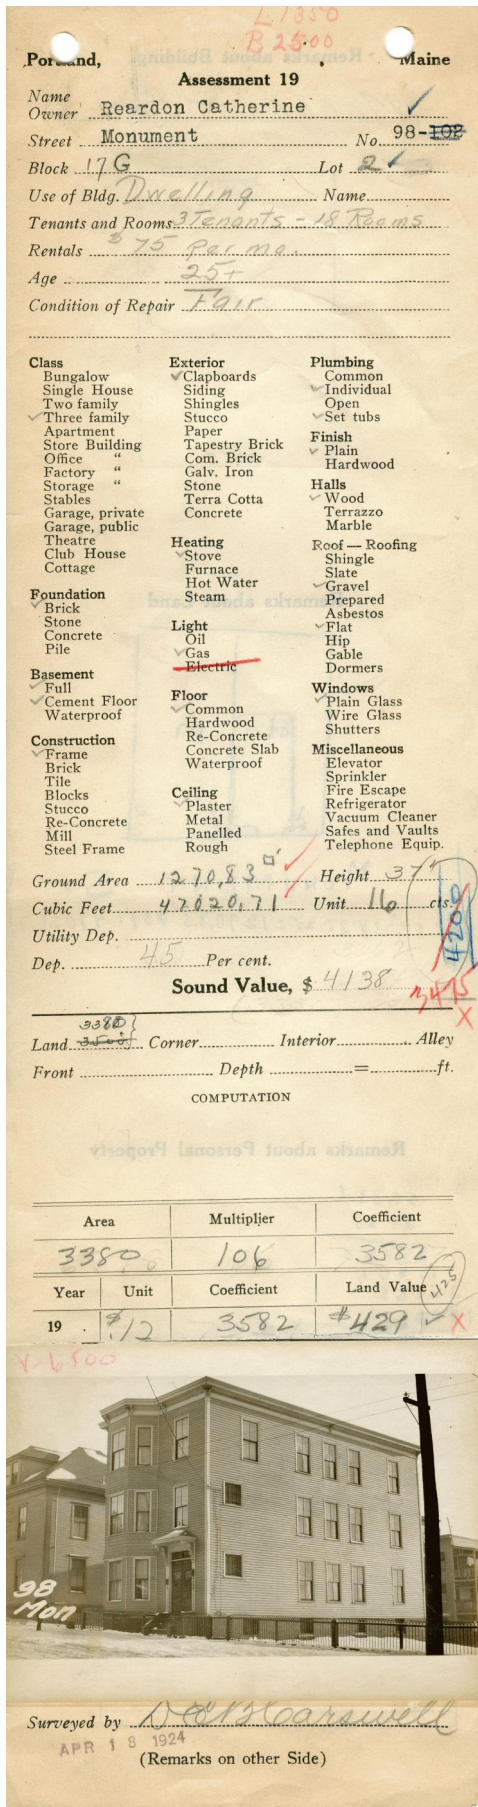 L 1350
B 2500
Portland, Maine
Assessment 19
Name
Owner Reardon Catherine
Street Monument No. 98-102
Block 17G Lot 2
Use of Bldg. Dwelling Name
Tenants and Rooms 3 Tenants - 18 Rooms
Rentals $75 Per mo.
Age 25+
Condition of Repair Fair
Class
Bungalow
Single House
Two family
Three family
Apartment
Store Building
Office "
Factory "
Storage "
Stables
Garage, private
Garage, public
Theatre
Club House
Cottage
Foundation
Brick
Stone
Concrete
Pile
Basement
Full
Cement Floor
Waterproof
Construction
Frame
Brick
Tile
Blocks
Stucco
Re-Concrete
Mill
Steel Frame
Exterior
Clapboards
Siding
Shingles
Stucco
Paper
Tapestry Brick
Com. Brick
Galv. Iron
Stone
Terra Cotta
Concrete
Heating
Stove
Furnace
Hot Water
Steam
Light
Oil
Gas
Electric
Floor
Common
Hardwood
Re-Concrete
Concrete Slab
Waterproof
Ceiling
Plaster
Metal
Panelled
Rough
Plumbing
Common
Individual
Open
Set tubs
Finish
Plain
Hardwood
Halls
Wood
Terrazzo
Marble
Roof — Roofing
Shingle
Slate
Gravel
Prepared
Asbestos
Flat
Hip
Gable
Dormers
Windows
Plain Glass
Wire Glass
Shutters
Miscellaneous
Elevator
Sprinkler
Fire Escape
Refrigerator
Vacuum Cleaner
Safes and Vaults
Telephone Equip.
Ground Area 1270,83 Height 37
Cubic Feet 47020,71 Unit 16 cts.
4200
Utility Dep.
Dep. 45 Per cent.
Sound Value, $ 4138
3475
X
3380
Land 3500 Corner Interior Alley
Front Depth = ft.
COMPUTATION
Area Multiplier Coefficient
3380 106 3582
Year Unit Coefficient Land Value 425
19 . $.12 3582 $429 X
98
Mon
Surveyed by Carswell
APR 18 1924
(Remarks on other Side)